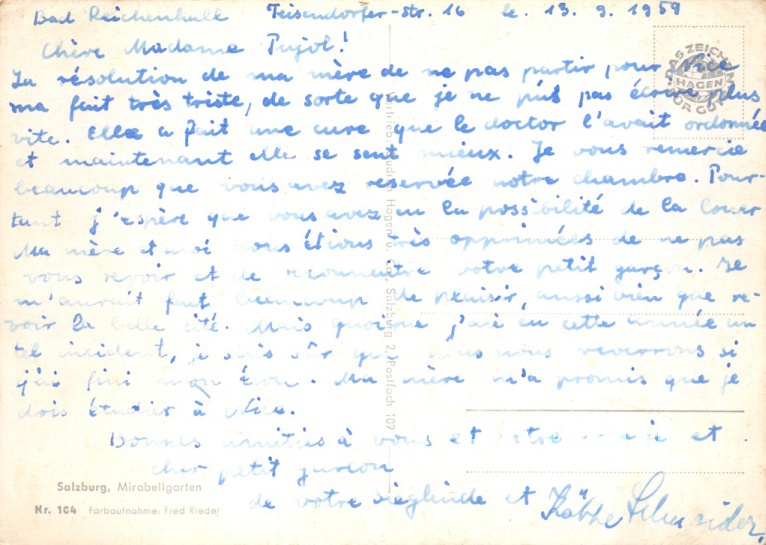 Bad Reichenhall Teisendorfer-str. 16 le. 13. 9. 1959
Chère Madame Pujol!
La résolution de ma mère de ne pas partir pour Nice
ma fait très triste, de sorte que je ne pus pas écrire plus
vite. Elle a fait une cure que le doctor l'avait ordonnée
et maintenant elle se sent mieux. Je vous remercie
beaucoup que vous avez reservée notre chambre. Pour-
tant j'espère que vous avez eu la possibilité de la louer
Ma mère et moi nous étions très opprimées de ne pas
vous revoir et de reconnaître votre petit garçon. Ce
m'aurait fait beaucoup de plaisir, aussi bien que re-
voir la belle cité. Mais quoique j'aie eu cette année un
tel incident, je suis sûr que nous nous reverrons si
j'ai fini mon. Ma mère m'a promis que je
dois étudier à Nice.
Bonnes amitiés à vous et votre et
cher petit garcon
de votre Sieglinde et Käthe Schneider.
DAS ZEICHEN
HAGEN
FÜR GÜTE
Salzburg 2, Postfach 102
Salzburg, Mirabellgarten
Nr. 104 Farbaufnahme: Fred Rieder